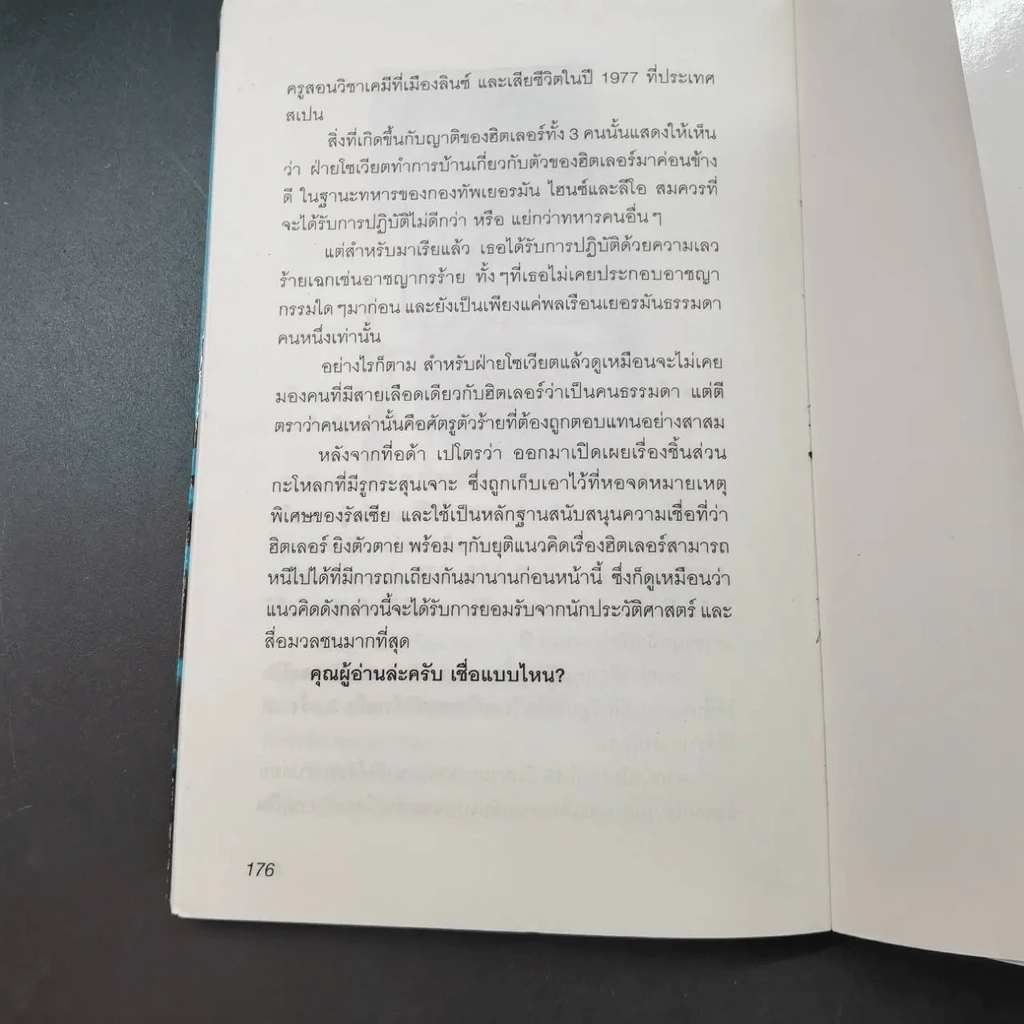 ครูสอนวิชาเคมีที่เมืองลินซ์ และเสียชีวิตในปี 1977 ที่ประเทศ
สเปน
สิ่งที่เกิดขึ้นกับญาติของฮิตเลอร์ทั้ง 3 คนนั้นแสดงให้เห็น
ว่า ฝ่ายโซเวียตทำการบ้านเกี่ยวกับตัวของฮิตเลอร์มาค่อนข้าง
ดี ในฐานะทหารของกองทัพเยอรมัน ไฮนซ์และลีโอ สมควรที่
จะได้รับการปฏิบัติไม่ดีกว่า หรือ แย่กว่าทหารคนอื่นๆ
แต่สำหรับมาเรียแล้ว เธอได้รับการปฏิบัติด้วยความเลว
ร้ายเฉกเช่นอาชญากรร้าย ทั้งๆที่เธอไม่เคยประกอบอาชญา
กรรมใดๆมาก่อน และยังเป็นเพียงแค่พลเรือนเยอรมันธรรมดา
คนหนึ่งเท่านั้น
อย่างไรก็ตาม สำหรับฝ่ายโซเวียตแล้วดูเหมือนจะไม่เคย
มองคนที่มีสายเลือดเดียวกับฮิตเลอร์ว่าเป็นคนธรรมดา แต่ตี
ตราว่าคนเหล่านั้นคือศัตรูตัวร้ายที่ต้องถูกตอบแทนอย่างสาสม
หลังจากที่อด้า เปโตรว่า ออกมาเปิดเผยเรื่องชิ้นส่วน
กะโหลกที่มีรูกระสุนเจาะ ซึ่งถูกเก็บเอาไว้ที่หอจดหมายเหตุ
พิเศษของรัสเซีย และใช้เป็นหลักฐานสนับสนุนความเชื่อที่ว่า
ฮิตเลอร์ ยิงตัวตาย พร้อมๆกับยุติแนวคิดเรื่องฮิตเลอร์สามารถ
หนีไปได้ที่มีการถกเถียงกันมานานก่อนหน้านี้ ซึ่งก็ดูเหมือนว่า
แนวคิดดังกล่าวนี้จะได้รับการยอมรับจากนักประวัติศาสตร์ และ
สื่อมวลชนมากที่สุด
คุณผู้อ่านล่ะครับ เชื่อแบบไหน?
176